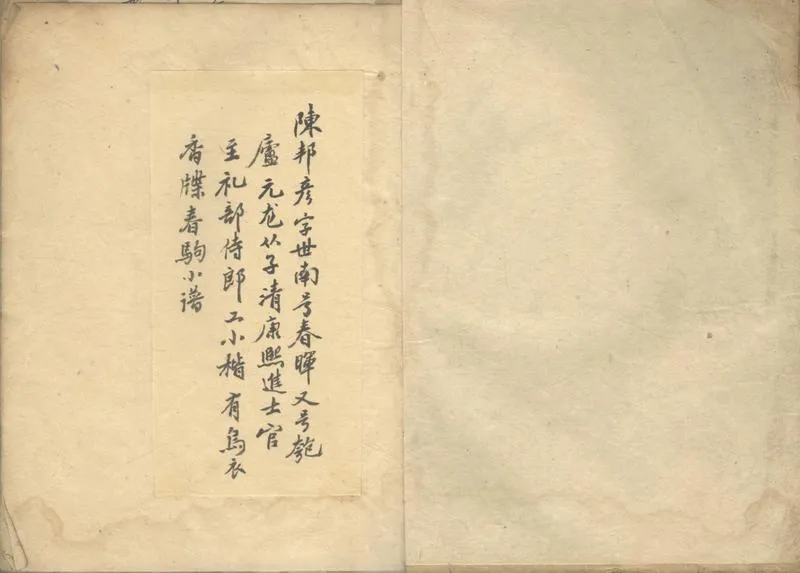 陳邦彦字世南号春暉又号匏
廬元龙从子清康熙進士官
至礼部侍郎工小楷有烏衣
香牒春駒小谱